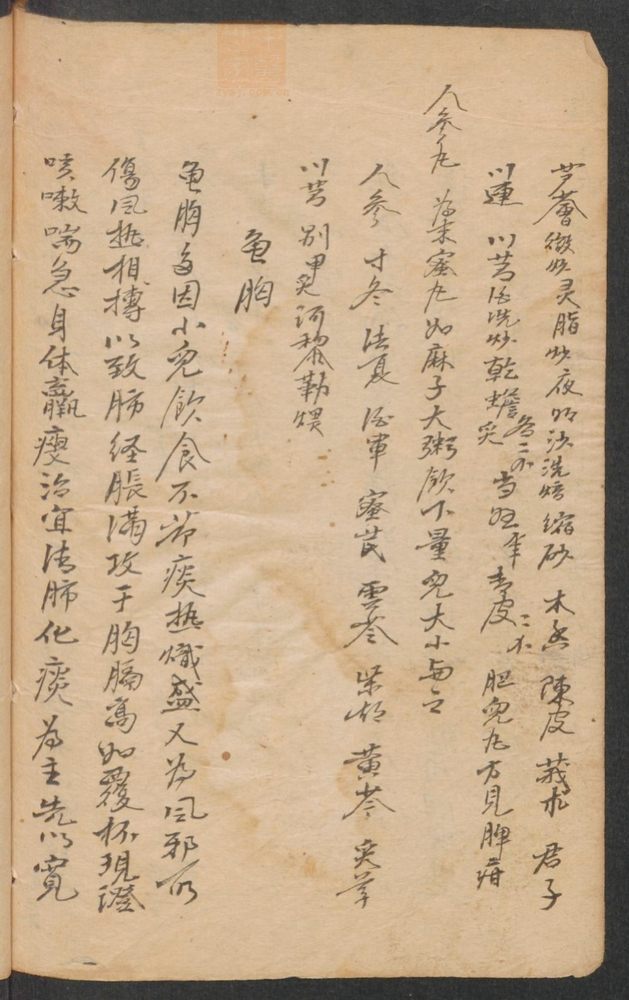 芦薈微炒灵脂炒夜明沙洗焙缩砂 木香 陳皮 莪朮 君子
川連 川芎酒洗炒乾蟾炙各二不 当归 青皮二不 胆 兔丸方見脾疳
人参丸 為末蜜丸如麻子大粥飲下量兒大小与之
人参 寸冬 法夏 酒軍 蜜芪 雲苓 柴胡 黄芩 炙草
川芎 别甲炙 訶黎勒煨
龟胸
龟胸多因小兒飲食不节痰热熾盛又為风邪所
傷风热相搏以致肺经脹满攻于胸膈高如覆杯現證
咳嗽喘急身体羸瘦治宜清肺化痰為主先以寛